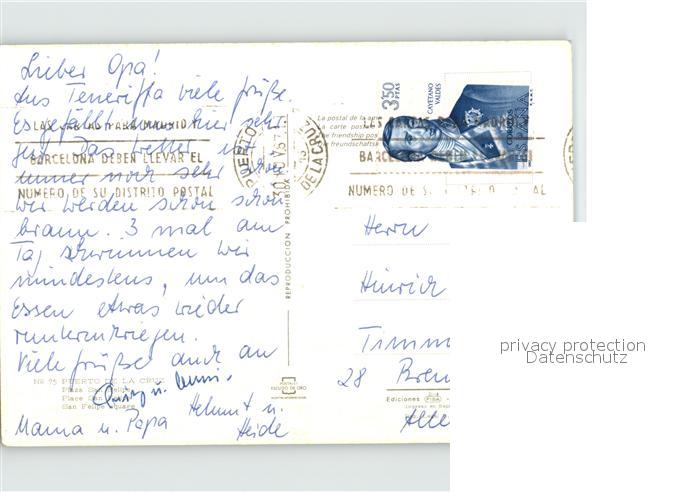 Lieber Opa!
Aus Teneriffa viele Grüße.
Es gefällt uns hier sehr
gut. Das Wetter ist
immer noch sehr schön
wir werden schon schön
braun. 3 mal am
Tag schwimmen wir
mindestens, um das
Essen etwas wieder
runterzukriegen.
Viele Grüße auch an
Helmut u.
Mama u. Papa Heide
Nº 75 PUERTO DE LA CRUZ
Plaza San Felipe
Place San
San Felipe Square
LAS CARTAS PARA MADRID Y
BARCELONA DEBEN LLEVAR EL
NUMERO DE SU DISTRITO POSTAL
PUERTO
DE LA CRUZ
REPRODUCCION PROHIBIDA
POSTALES
ESCUDO DE ORO
La postal de la
La carte postale
The friendship post
Freundschafts
3'50
PTAS
CAYETANO
VALDES
CORREOS
ESPAÑA
BARCELONA
NUMERO DE SU
POSTAL
Herrn
Hinrich
Timm
28 Brem
Ediciones FISA
Alle
privacy protection
Datenschutz